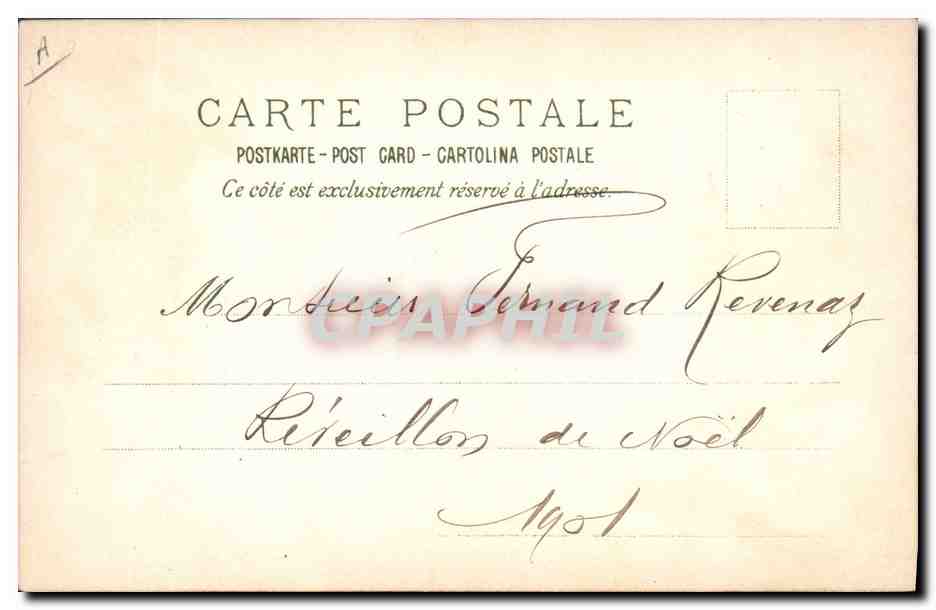 A
CARTE POSTALE
POSTKARTE - POST CARD - CARTOLINA POSTALE
Ce côté est exclusivement réservé à l'adresse.
Monsieur Fernand Revenaz
CPAPHIL
Réveillon de Noël
1901